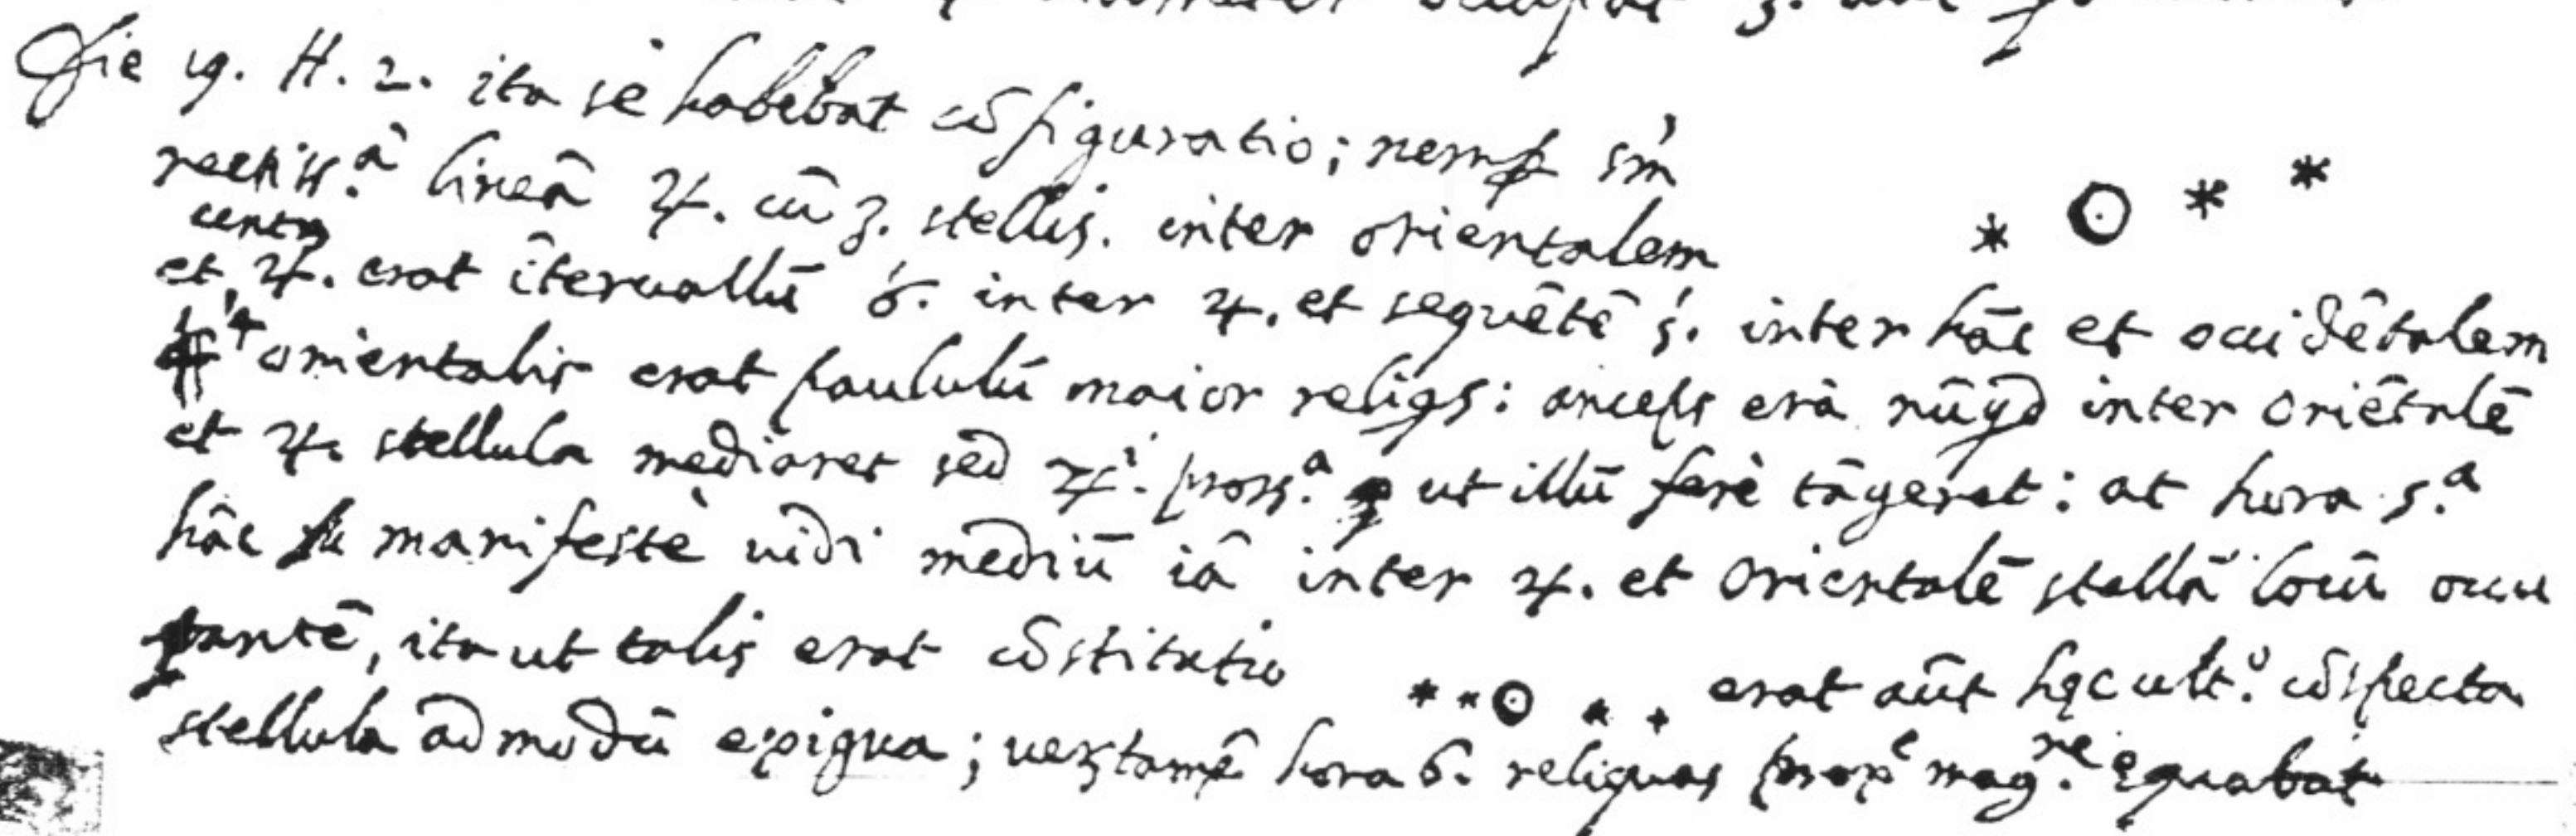 Die 19. H. 2. ita se habebat cō figuratio; nemp̱ sm̄
rectiss.ā lineā ♃. cū 3. stellis. inter orientalem
centrū
et, ♃. erat īteruallū 6'. inter ♃. et sequētē 5'. inter hāc et occidētalem
4' orientalis erat paululū maior reliqs: anceps erā nūqd inter oriētalē
et ♃. stellula mediaret sed ♃i. pross.a ut illū ferè tāgeret: at hora 5.a
hāc manifestè uidi mediū iā inter ♃. et orientalē stellā locū occu
pantē, ita ut talis erat cōstitutio * * O * * erat aūt hęc ult.o cōspecta
stellula admodū exigua; ueꝝtamē hora 6. reliquas prope mag.ne ęquabat